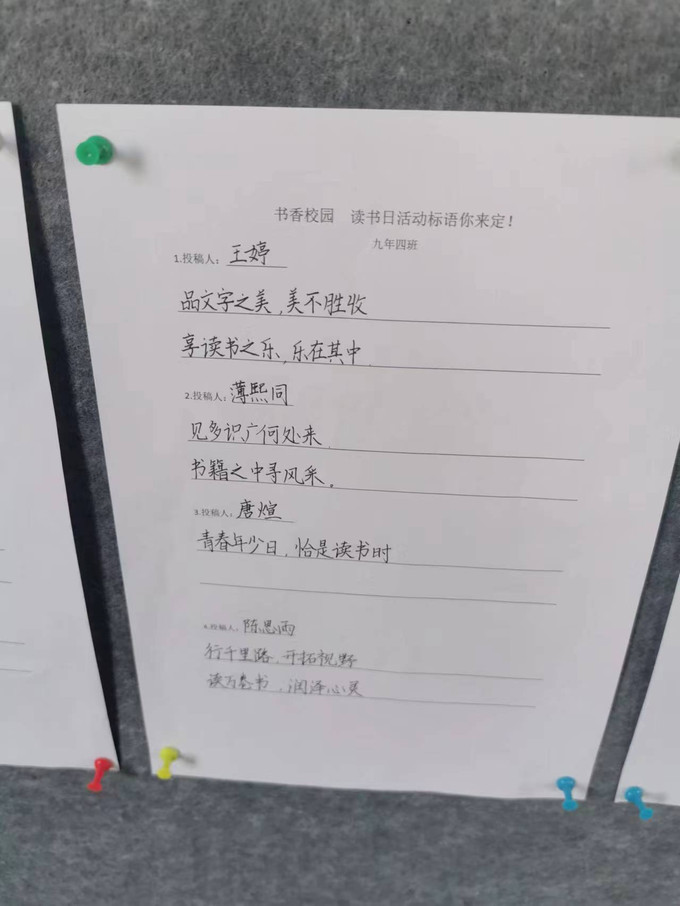 书香校园 读书日活动标语你来定！
九年四班
1.投稿人：王婷
品文字之美，美不胜收
享读书之乐，乐在其中
2.投稿人：薄熙同
见多识广何处来
书籍之中寻风采。
3.投稿人：唐煊
青春年少日，恰是读书时
4.投稿人：陈思雨
行千里路，开拓视野
读万卷书，润泽心灵